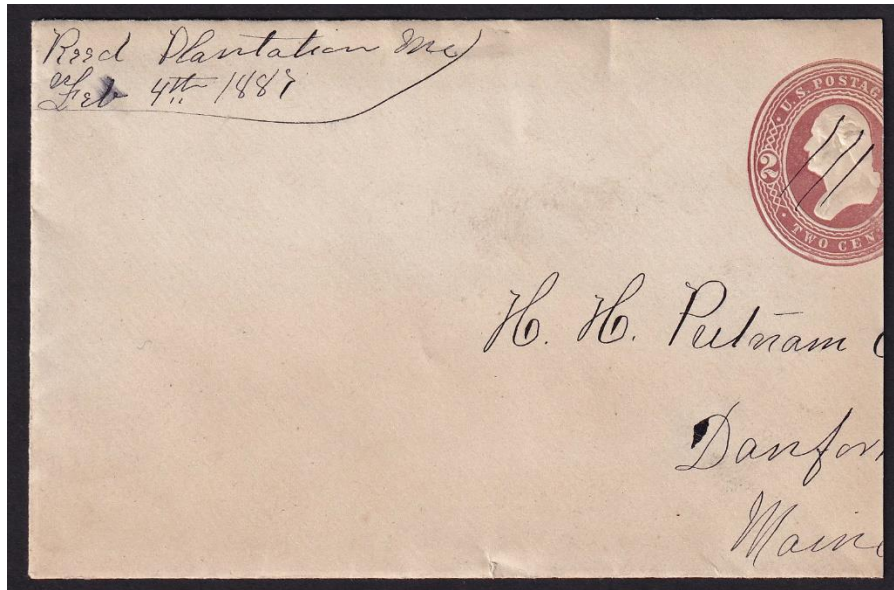 Reed Plantation Me
Feb 4th 1887
U.S. POSTAG
2
TWO CEN
H. H. Putnam
Danfor
Maine